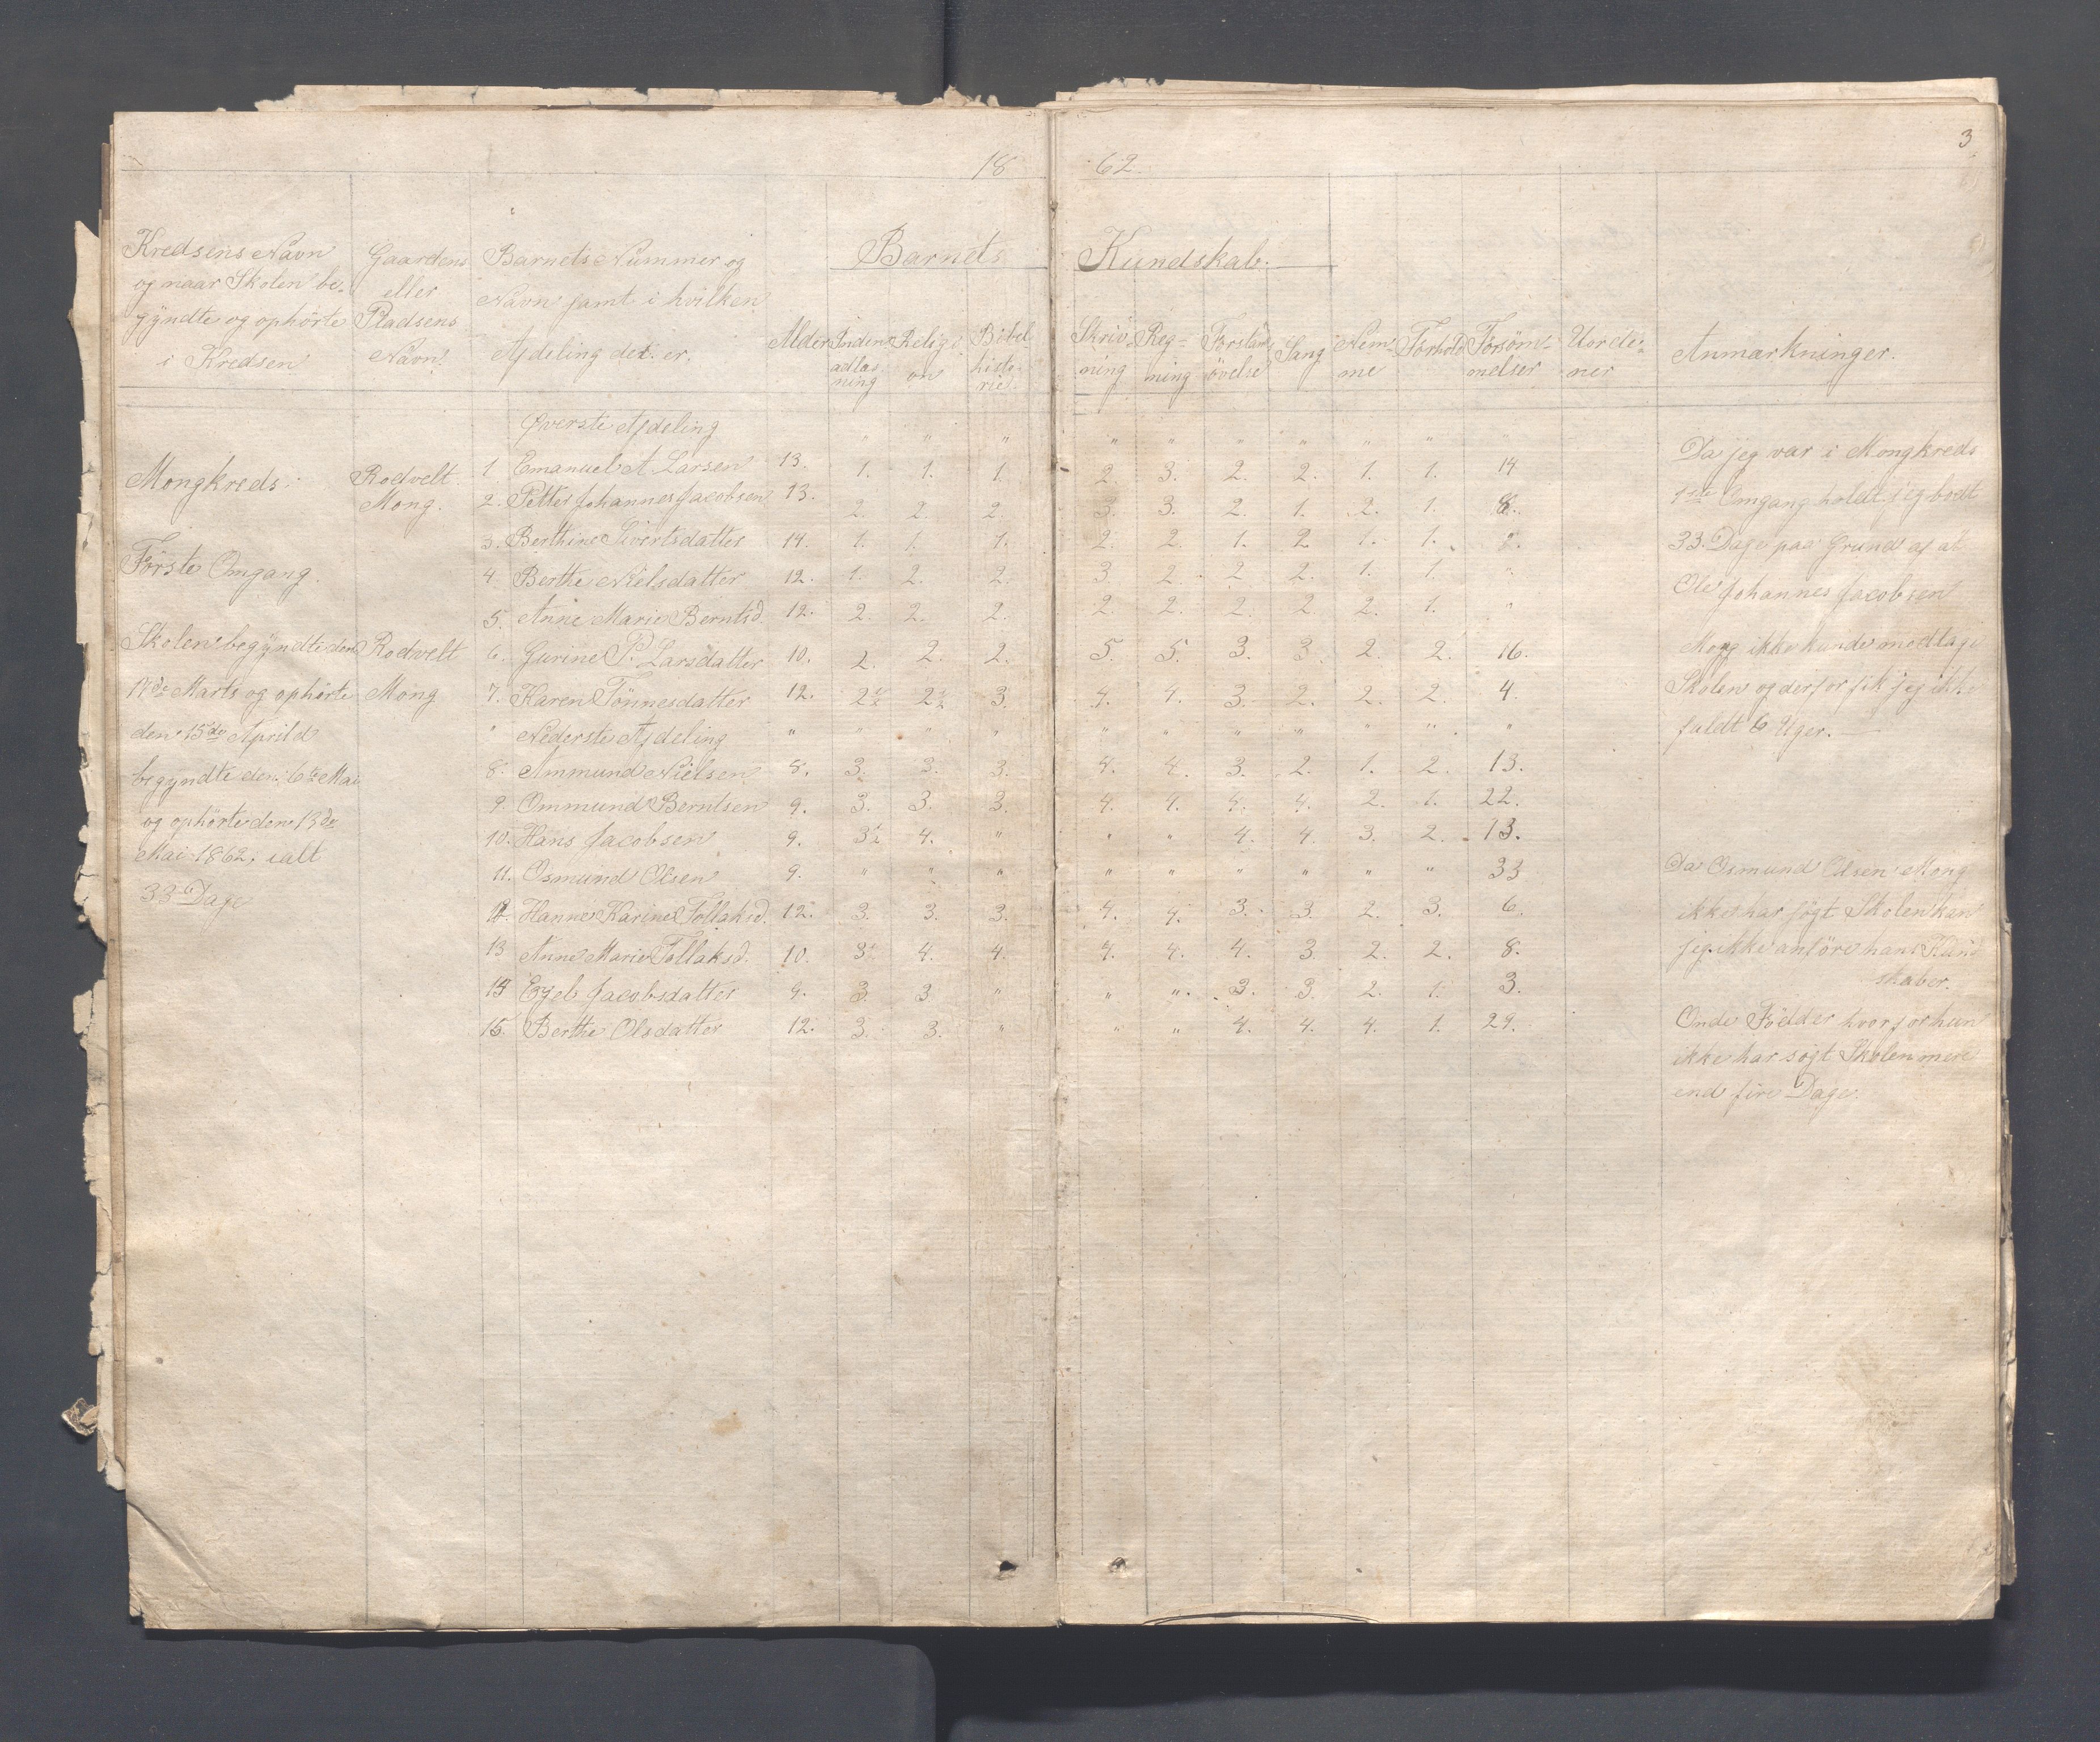 3
18 62.
Kredsens Navn
og naar Skolen be-
gyndte og ophörte
i Kredsen
Gaardens
eller
Pladsens
Navn.
Barnets Nummer og
Navn samt i hvilken
Afdeling det er.
Barnets Kundskab.
Alder
Inden-
adlæs-
ning
Religi-
on
Bibel
histo-
rie.
Skriv-
ning
Reg-
ning
Forstan
övelse
Sang
Nem-
me
Forhold
Forsöm-
melser
Uorde-
ner
Anmærkninger.
Øverste Afdeling " " " " " " " " "
Mongkreds.
Første Omgang.
Skolen begyndte den
17de Marts og ophörte
den 15de April d
begyndte den 6te Mai
og ophörte den 13de
Mai 1862, ialt
33 Dage
Rodvelt.
Mong.
Rodvelt
Mong
1 Emanuel A. Larsen 13. 1. 1. 1. 2. 3. 2. 2. 1. 1. 14
2. Petter Johannes Jacobsen 13. 2. 2. 2. 3. 3. 2. 1. 2. 1. 8.
3. Berthine Sivertsdatter 14. 1. 1. 1. 2. 2. 1. 2 1. 1.
4. Berthe Nielsdatter 12. 1. 2. 2. 3. 2. 2 2. 1. 1. "
5. Anne Marie Berntsd. 12. 2. 2. 2. 2. 2. 2. 2. 2. 1. "
6. Gurine P. Larsdatter 10. 2. 2. 2. 5. 5. 3. 3. 2. 2. 16.
7. Karen Tönnesdatter 12. 2½ 2½ 3. 4. 4. 3. 2. 2. 2. 4.
" Nederste Afdeling " " " " " " " " " " "
8. Ammund Nielsen 8. 3. 3. 3. 4. 4. 3. 2. 1. 2. 13.
9. Ommund Berntsen 9. 3. 3. 3. 4. 4. 4. 4. 2. 1. 22.
10. Hans Jacobsen 9. 3½ 4. " " " 4. 4. 3. 2. 13.
11. Osmund Olsen 9. " " " " " " " " " 33
12. Hanne Karine Tollaksd. 12. 3. 3. 3. 4. 4. 3. 3. 2. 3. 6.
13 Anne Marie Tollaksd. 10. 3½ 4. 4. 4. 4. 4. 3. 2. 2. 8.
14 Egel Jacobsdatter 9. 3. 3 " " " 3. 3. 2. 1. 3.
15. Berthe Olsdatter 12. 3. 3. " " " 4. 4. 4. 1. 29.
Da jeg var i Mongkreds
1ste Omgang holdt jeg bodt
33 Dage paa Grund af at
Ole Johannes Jacobsen
Mong ikke kunde modtage
Skolen og derfor fik jeg ikke
fuldt 6 Uger.
Da Osmund Olsen Mong
ikke har sögt Skolen kan
jeg ikke anföre hans Kund
skaber.
Onde Födder hvorfor hun
ikke har sögt Skolen mere
end fire Dage.